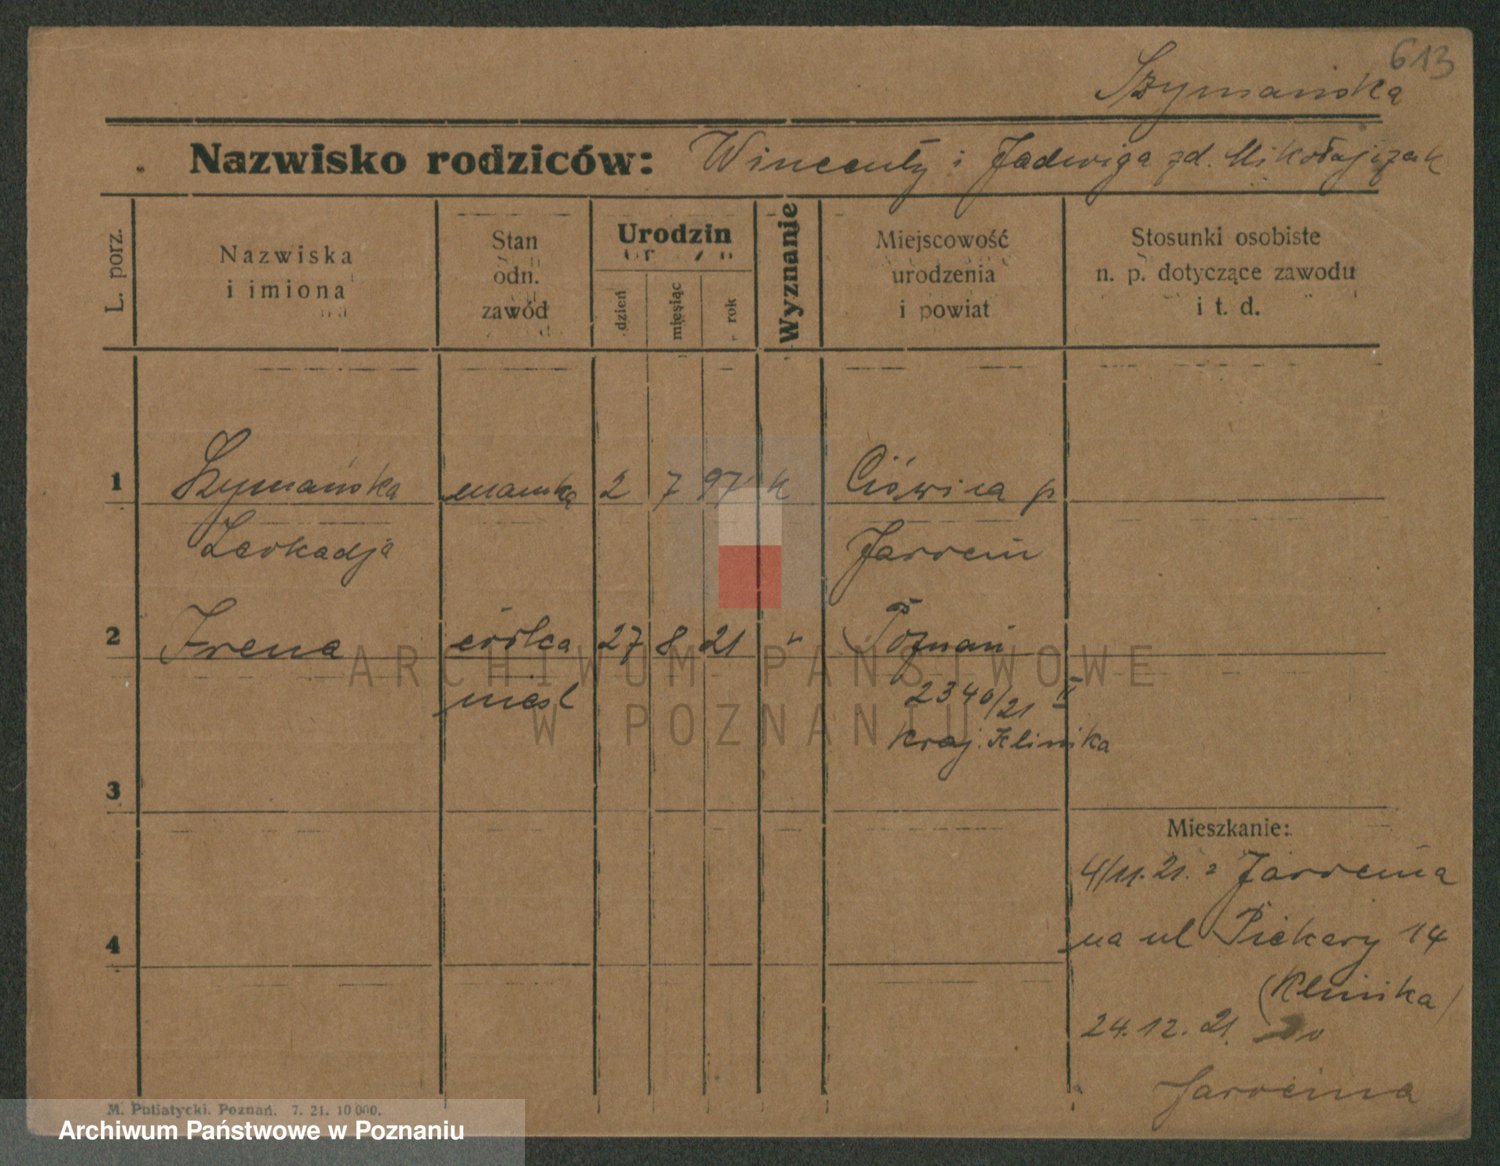 613
Szymańska
Nazwisko rodziców: Wincenty i Jadwiga zd. Mikołajczak
L. porz.
Nazwiska
i imiona
Stan
odn.
zawód
Urodzin
dzień
miesiąc
rok
Wyznanie
Miejscowość
urodzenia
i powiat
Stosunki osobiste
n. p. dotyczące zawodu
i t. d.
1 Szymańska 2 7 97 k Ciświca p
Leokadja Jarocin
2 Irena córka 27 8 21 " Poznań
nieśl 2340/21 II
kraj. Klinika
3
Mieszkanie:
4/11.21. z Jarocina
4 na ul Piekary 14
(Klinika)
24.12.21. Do
Jarocina
M. Putiatycki. Poznań. 7. 21. 10 000.
ARCHIWUM PAŃSTWOWE
W POZNANIU
Archiwum Państwowe w Poznaniu